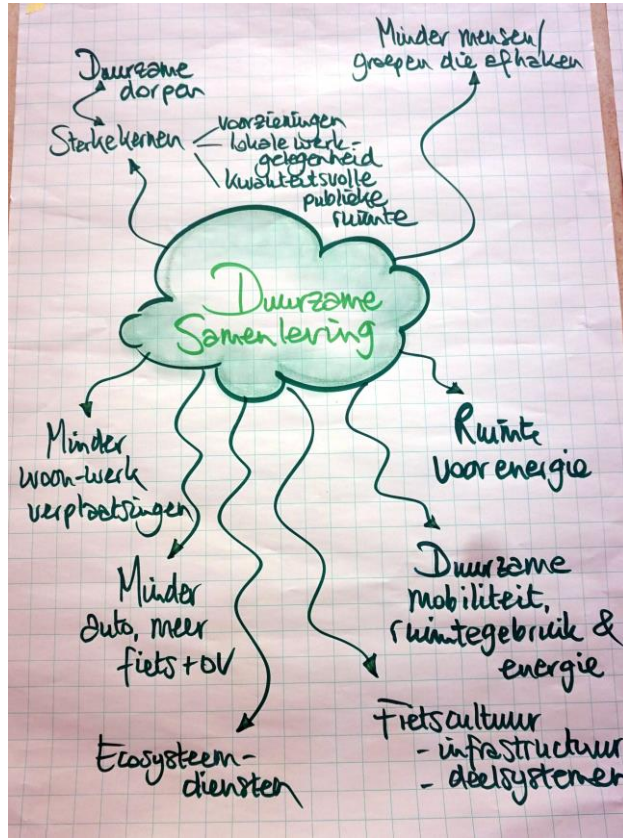 Duurzame
dorpen
Sterke kernen
voorzieningen
lokale werk-
gelegenheid
kwaliteitsvolle
publieke
ruimte
Minder mensen/
groepen die afhaken
Duurzame
Samenleving
Minder
woon-werk
verplaatsingen
Ruimte
voor energie
Minder
auto, meer
fiets + OV
Duurzame
mobiliteit,
ruimtegebruik &
energie
Ecosysteem-
diensten
Fietscultuur
- infrastructuur
- deelsystemen